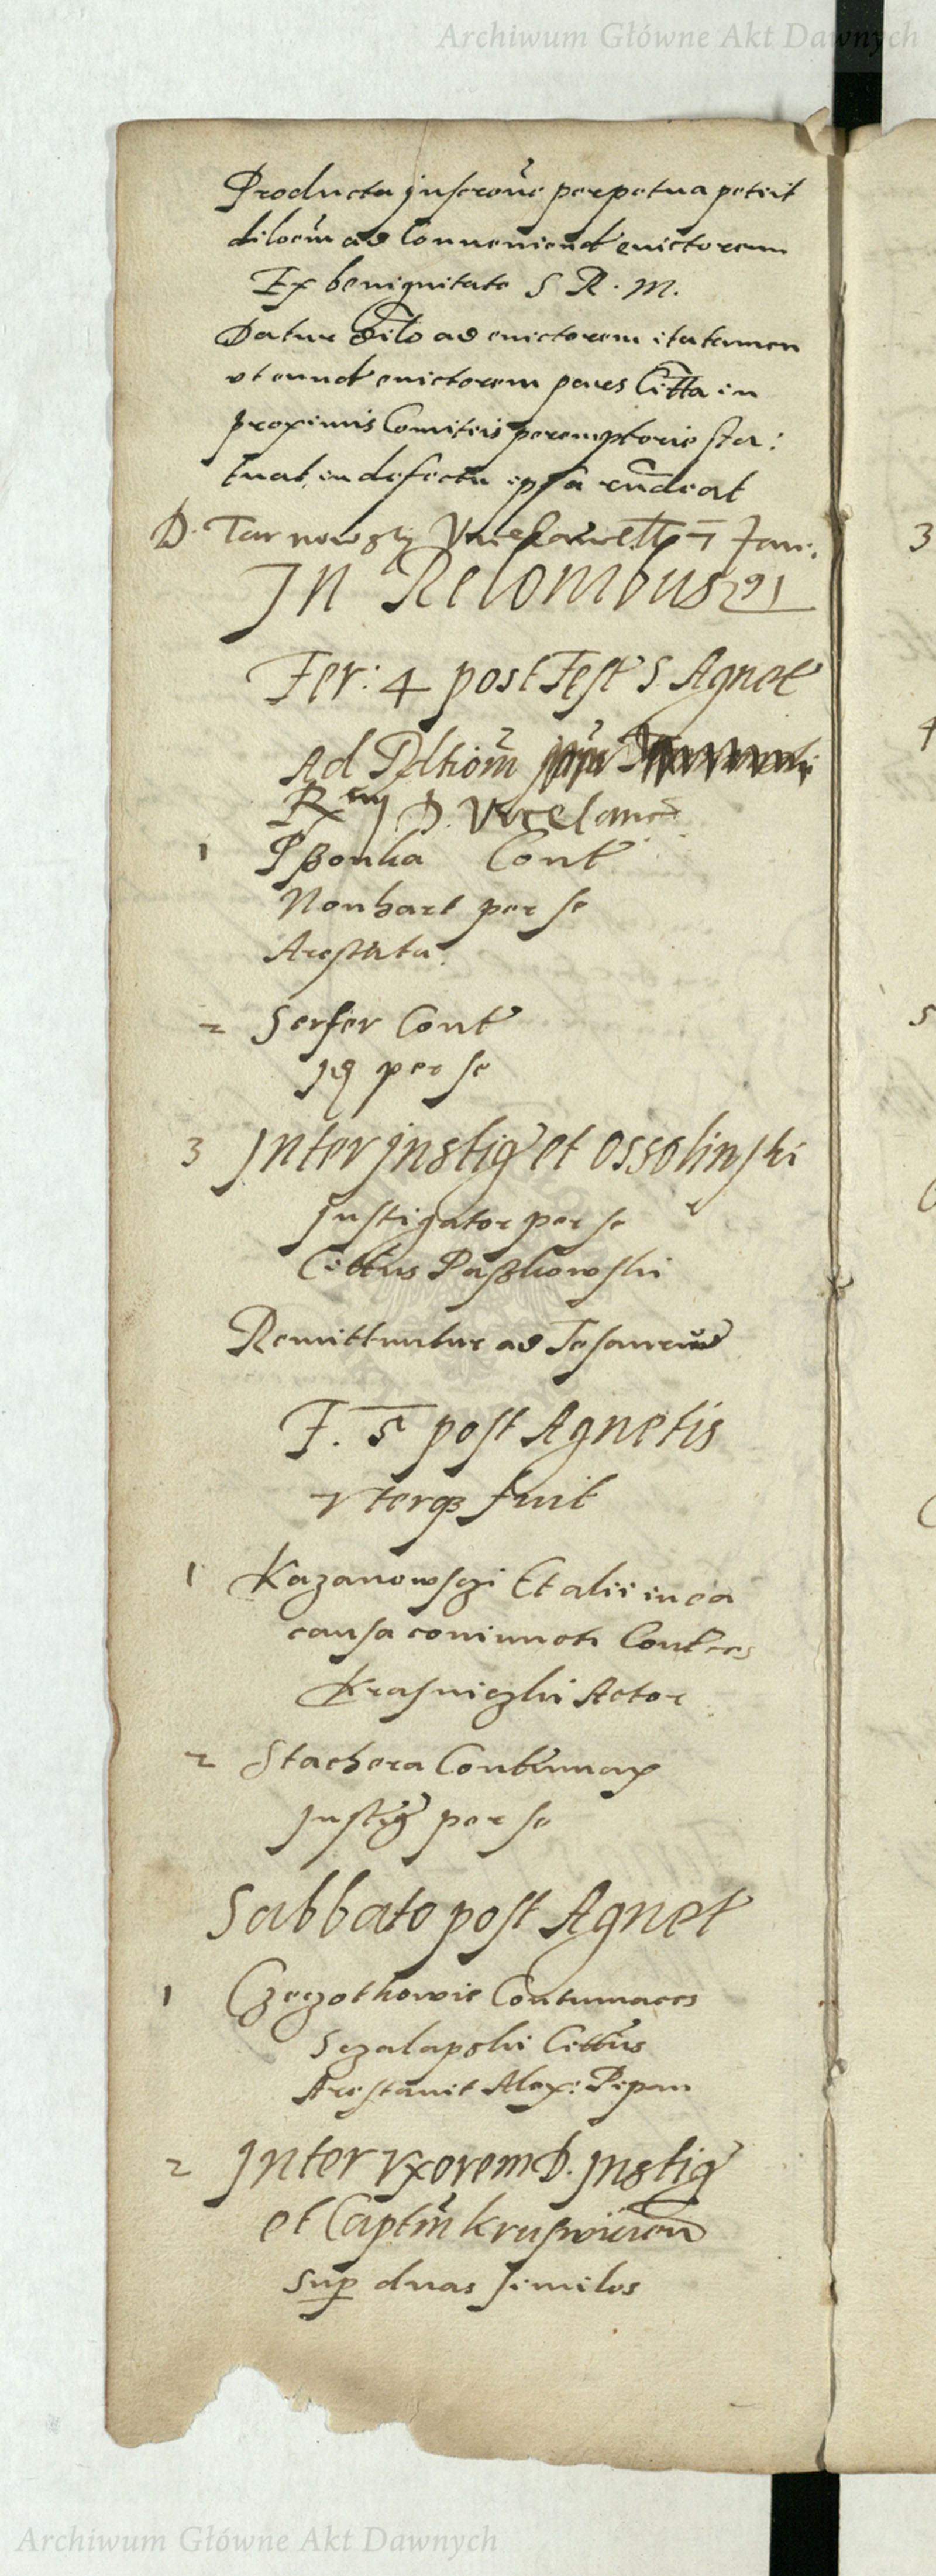 Archiwum Główne Akt Dawnych
Producta inscrõne perpetua petiit
diloem ad Conueniend evictorem
Ex benignitate S R. M.
Datur dilo ad evictorem itatamen
vt eund evictorem pares Citta in
proximis Comitiis peremptorie sta:
tuat, in defectu ipsa rñdeat
D. Tarnowsky 7 Jan:
In Relõnibus 91
Fer: 4 post Fest S Agnet
Ad
Rmi D. Vicecanc
1 Pszonka Cont
Nonhart per se
Arestata.
2 Serfer Cont
Jg per se
3 Inter Instig et Ossolinski
Instigator per se
Cittus Paszkowski
Remittuntur ad Tesaurũ
F. 5 post Agnetis
vterq fuit
1 Kazanowsgi Et alii in ea
causa coniuncti Contces
Krasniczki Actor
2 Stachera Contumax
Instig per se
Sabbato post Agnet
1 Czeczotkowie Contumaces
Sczalapski Cittus
Arestauit Alex: Pipan
2 Inter vxorem D. Instig
et Captm Kruswicien
Sup duas similes
3
4
5
Archiwum Główne Akt Dawnych